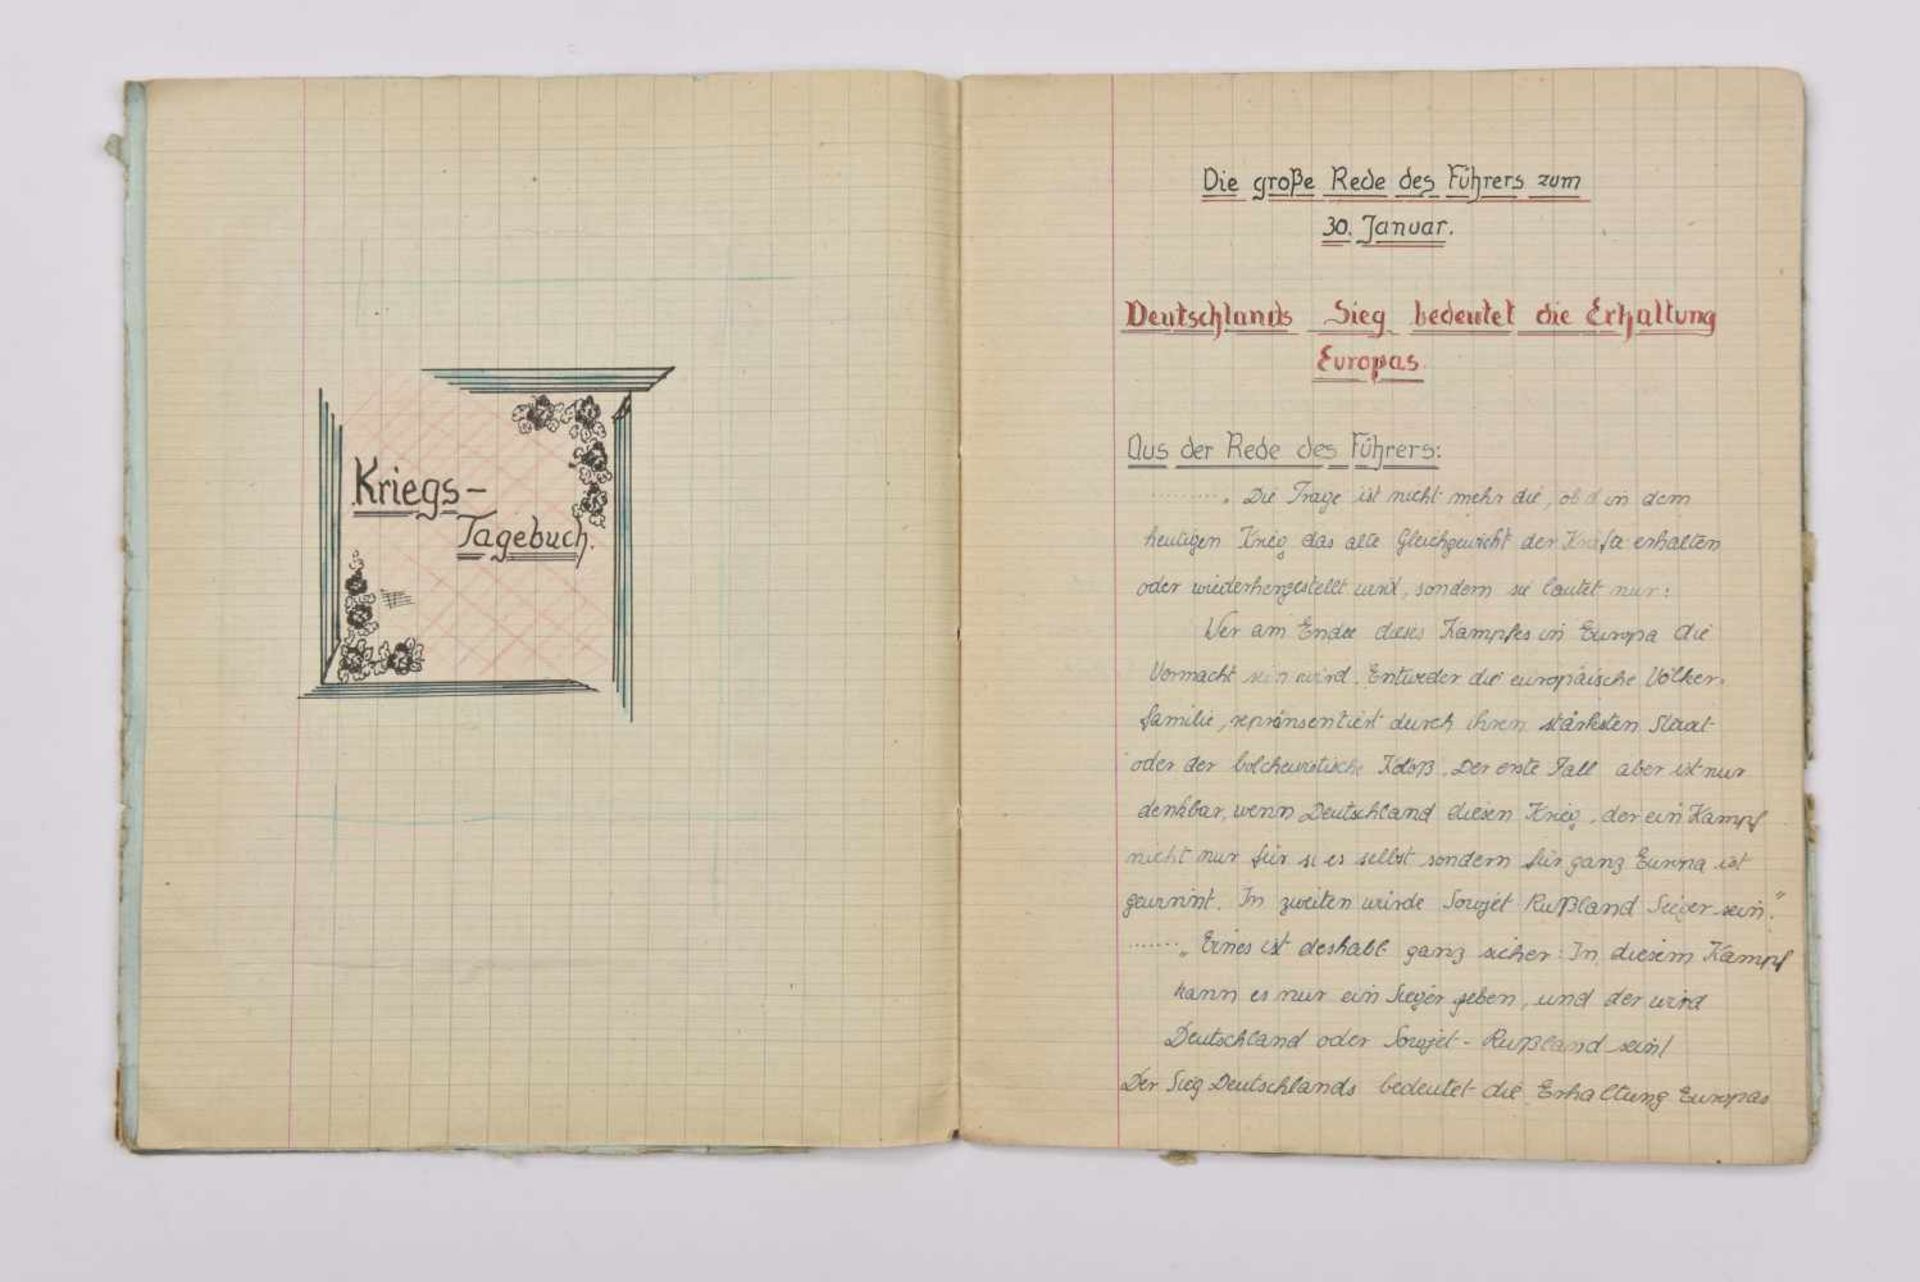 Kriegs-
Tagebuch.
Die große Rede des Führers zum
30. Januar.
Deutschlands Sieg bedeutet die Erhaltung
Europas.
Aus der Rede des Führers:
......... „Die Frage ist nicht mehr die, ob in dem
heutigen Krieg das alte Gleichgewicht der erhalten
oder wiederhergestellt wird, sondern sie lautet nur:
Wer am Ende dieses Kampfes in Europa die
Vormacht sein wird. Entweder die europäische Völker-
familie, repränsentiert durch ihren stärksten Staat
oder der bolchewistische Koloß. Der erste Fall aber ist nur
denkbar, wenn Deutschland diesen Krieg, der ein Kampf
nicht nur für si es selbst sondern für ganz Europa ist
gewinnt. In zweiten würde Sowjet Rußland Sieger sein."
....... „Eines ist deshalb ganz sicher: In diesem Kampf
kann es nur ein Sieger geben, und der wird
Deutschland oder Sowjet-Rußland sein!
Der Sieg Deutschlands bedeutet die Erhaltung Europas